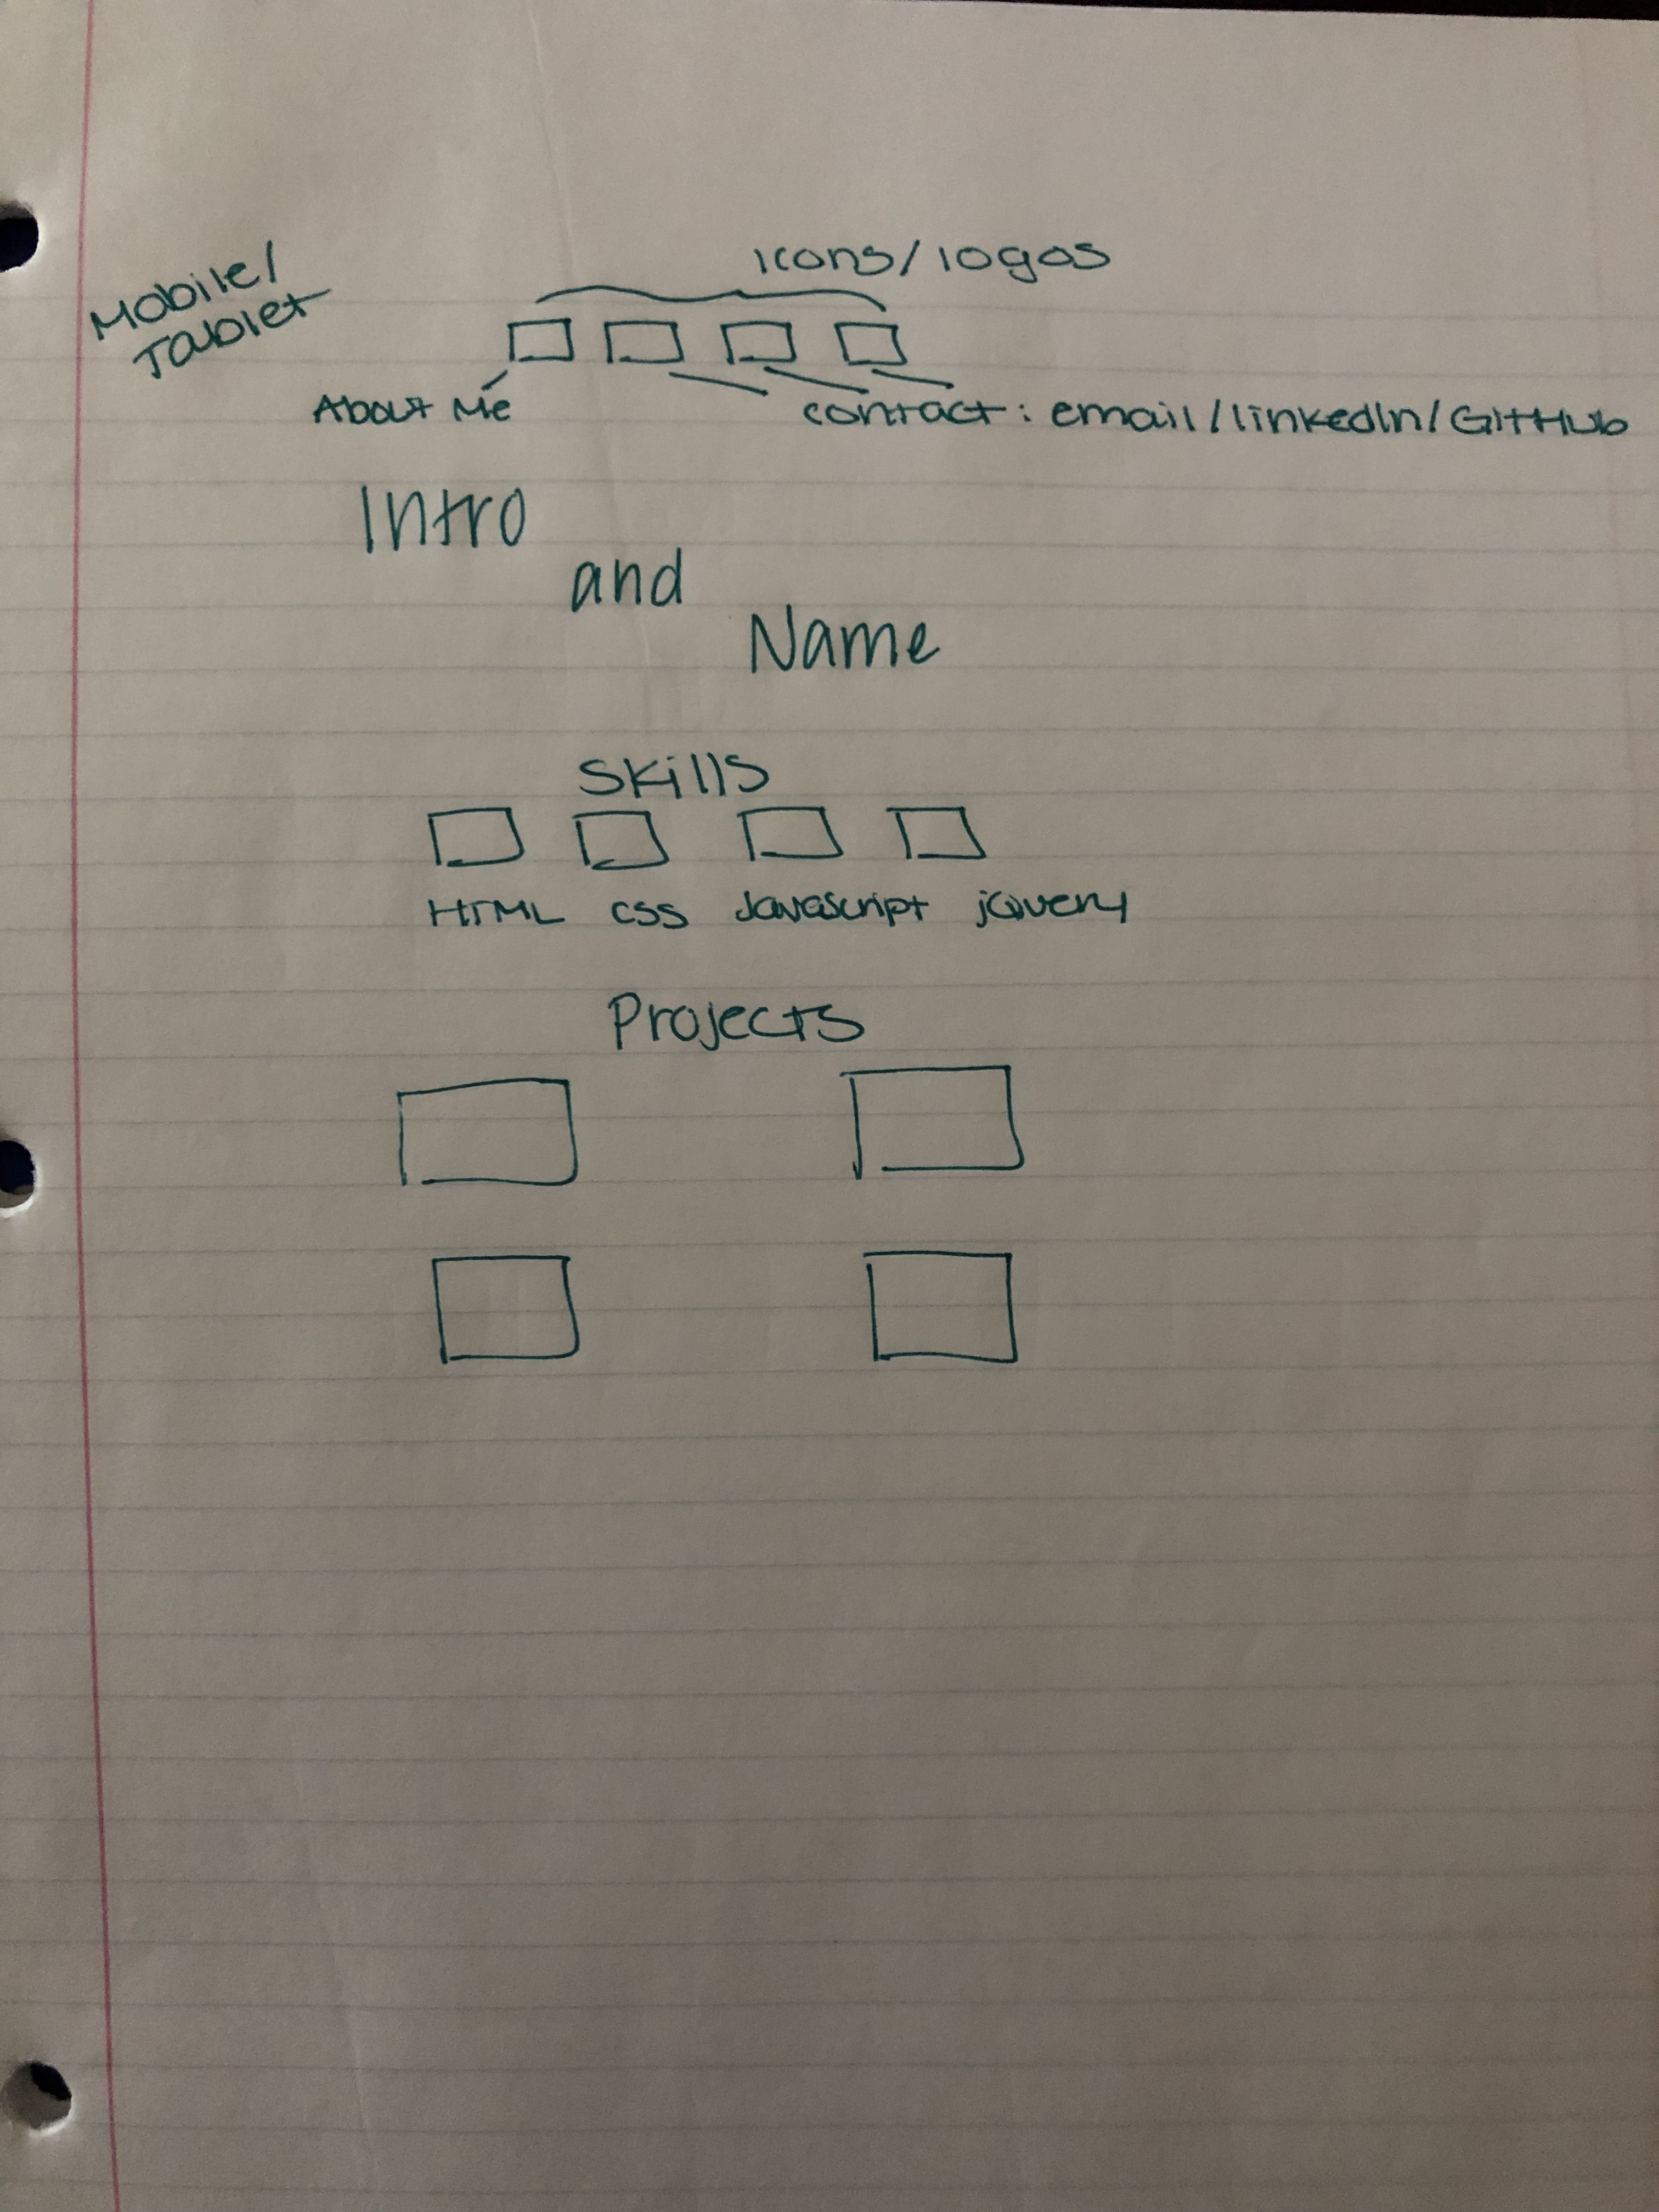 Mobile/
Tablet
icons/logos
About Me
contact: email/linkedIn/GitHub
Intro
and
Name
Skills
HTML CSS Javascript jQuery
Projects